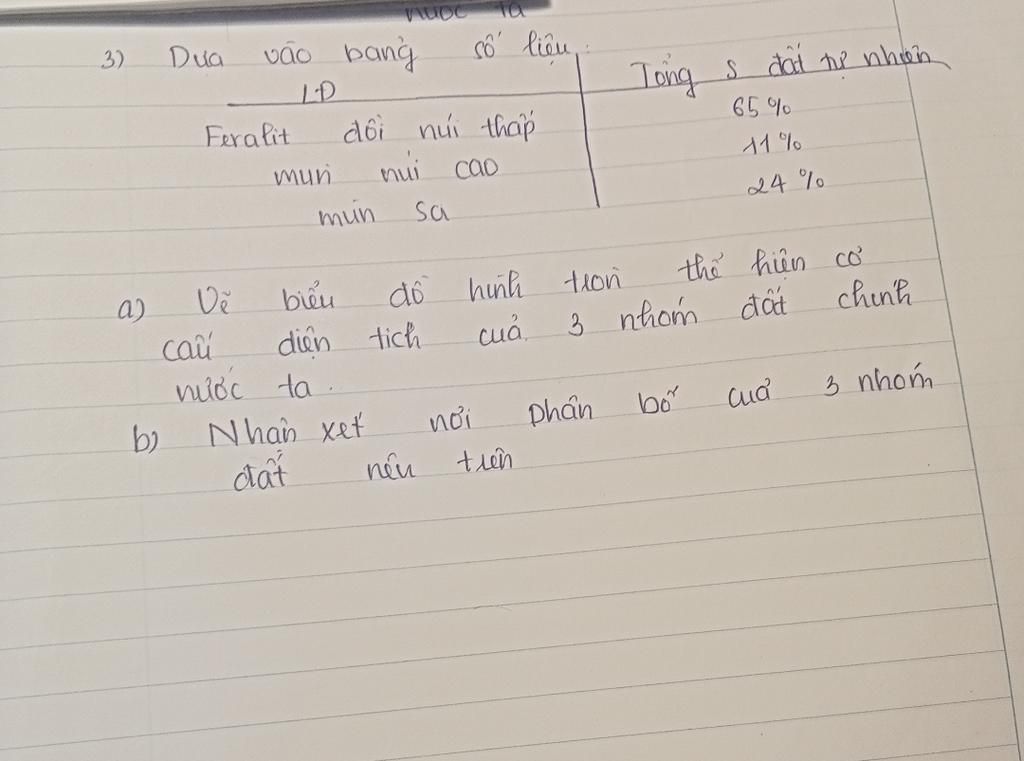 nước ta
3) Dựa vào bảng số liệu:
LĐ Tổng S đất tự nhiên
Feralit đồi núi thấp 65%
mùn núi cao 11%
mùn sa 24%
a) Vẽ biểu đồ hình tròn thể hiện cơ
cấu diện tích của 3 nhóm đất chính
nước ta.
b) Nhận xét nơi phân bố của 3 nhóm
đất nêu trên